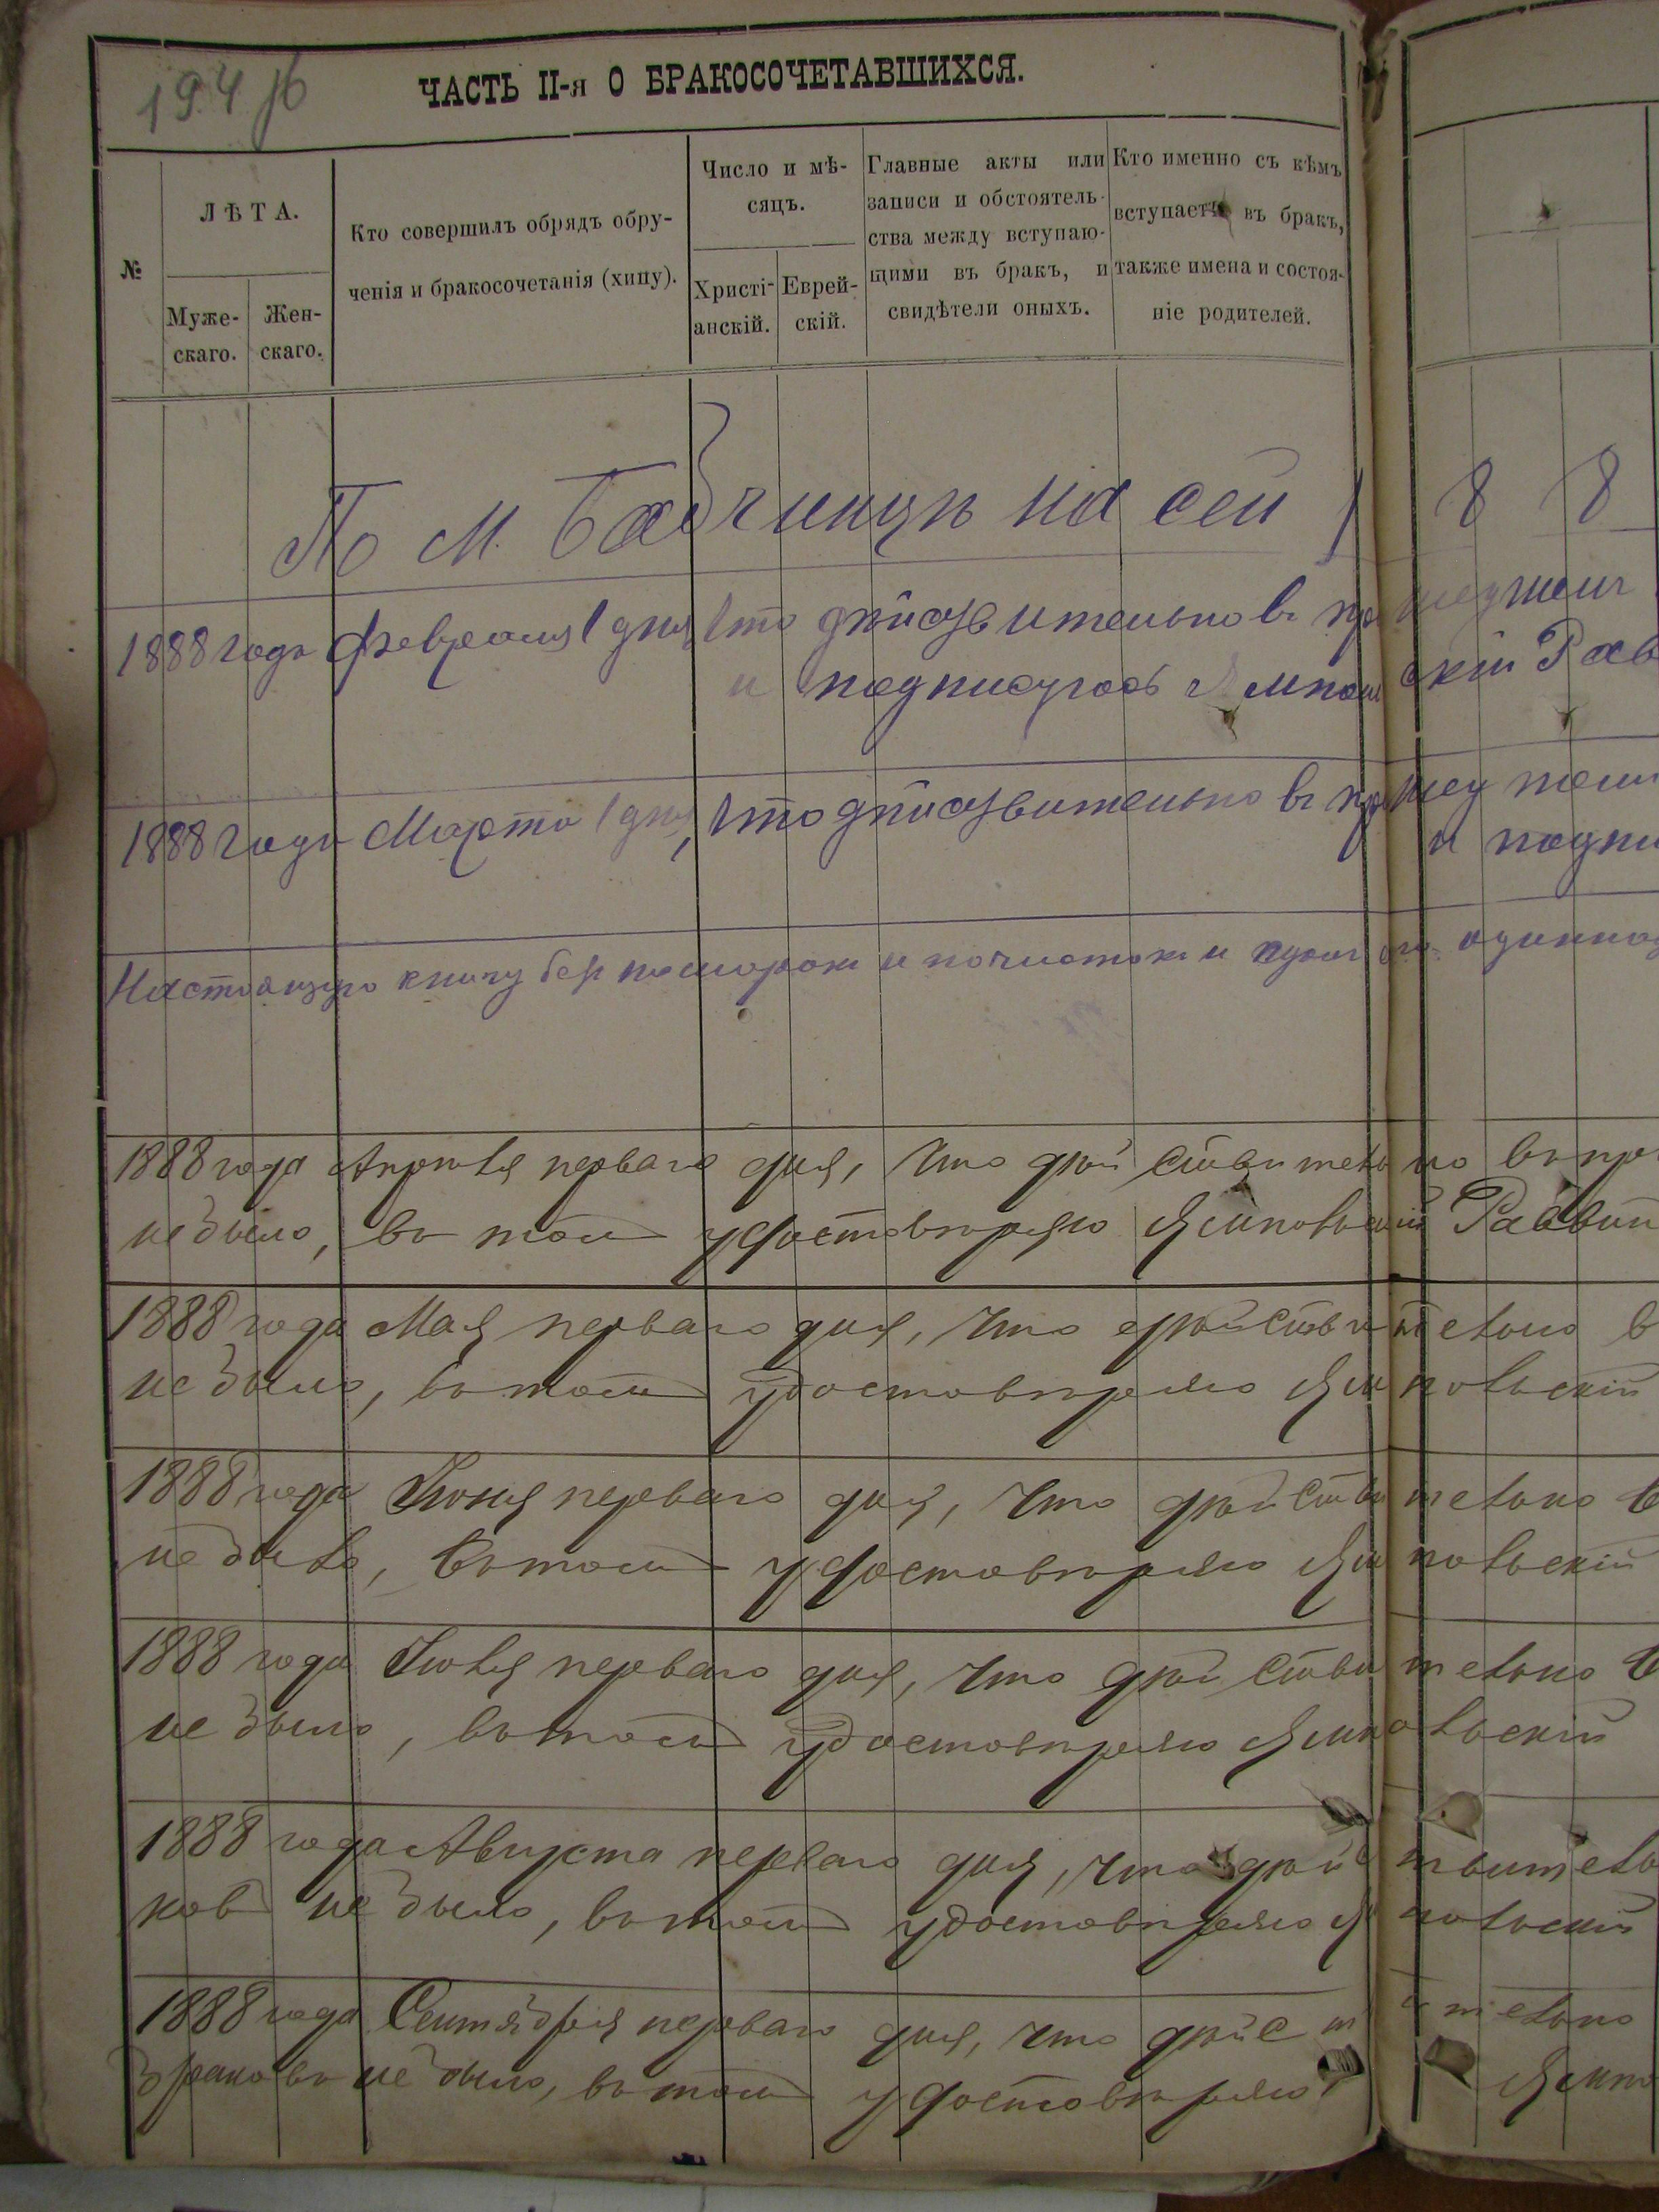 194 об
ЧАСТЬ II-я О БРАКОСОЧЕТАВШИХСЯ.
№
ЛѢТА.
Муже-
скаго.
Жен-
скаго.
Кто совершилъ обрядъ обру-
ченія и бракосочетанія (хипу).
Число и мѣ-
сяцъ.
Христі-
анскій.
Еврей-
скій.
Главные акты или
записи и обстоятель-
ства между вступаю-
щими въ бракъ, и
свидѣтели оныхъ.
Кто именно съ кѣмъ
вступаетъ въ бракъ,
также имена и состоя-
ніе родителей.
По м. Бабчинцѣ на сей 1 8 8
1888 года Февраля 1 дня, что дѣйствительно въ
и подписуюсь Ямпольскій Рав
1888 года Марта 1 дня, что дѣйствительно въ
и подпи
Настоящую книгу безъ помарокъ и почистокъ и
1888 года Апрѣля перваго дня, что дѣйствительно въ про
не было, въ томъ удостовѣряю Ямпольскій Раввин
1888 года Мая перваго дня, что дѣйствительно в
не было, въ томъ удостовѣряю Ямпольскій
1888 года Іюня перваго дня, что дѣйствительно в
не было, въ томъ удостовѣряю Ямпольскій
1888 года Іюля перваго дня, что дѣйствительно в
не было, въ томъ удостовѣряю Ямпольскій
1888 года Августа перваго дня, что дѣйствитель
ковъ не было, въ томъ удостовѣряю Ямпольскій
1888 года Сентября перваго дня, что дѣйствительно
браковъ не было, въ томъ удостовѣряю Ямпо